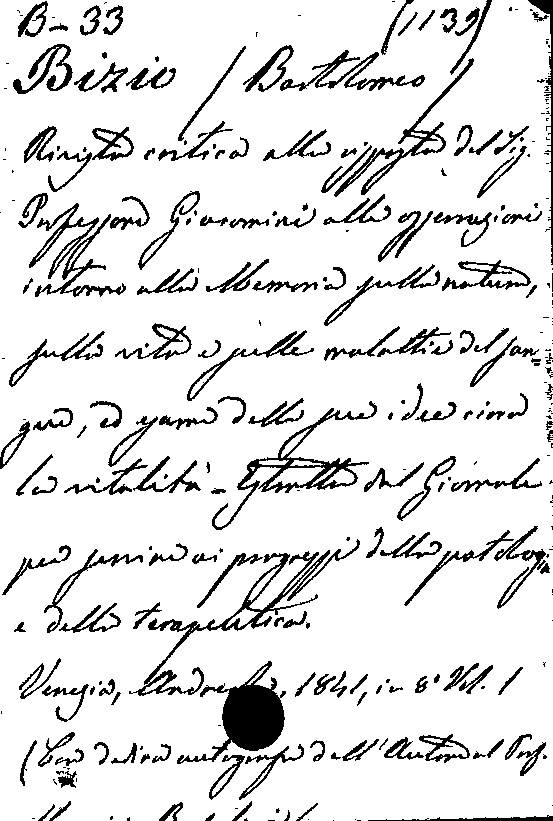 B-33 (1139)
Bizio (Bartolomeo)
Rivista critica alla risposta del Sig.
Professore Giacomini alle osservazioni
intorno alla Memoria sulla natura,
sulla vita e sulle malattie del san=
gue, ed esame delle sue idee circa
la vitalità - Estratto dal Giornale
per servire ai progressi della patologia
e della terapeutica.
Venezia, 1841, in 8° Vol. 1
(Con dedica autografa dell'Autore al Prof.